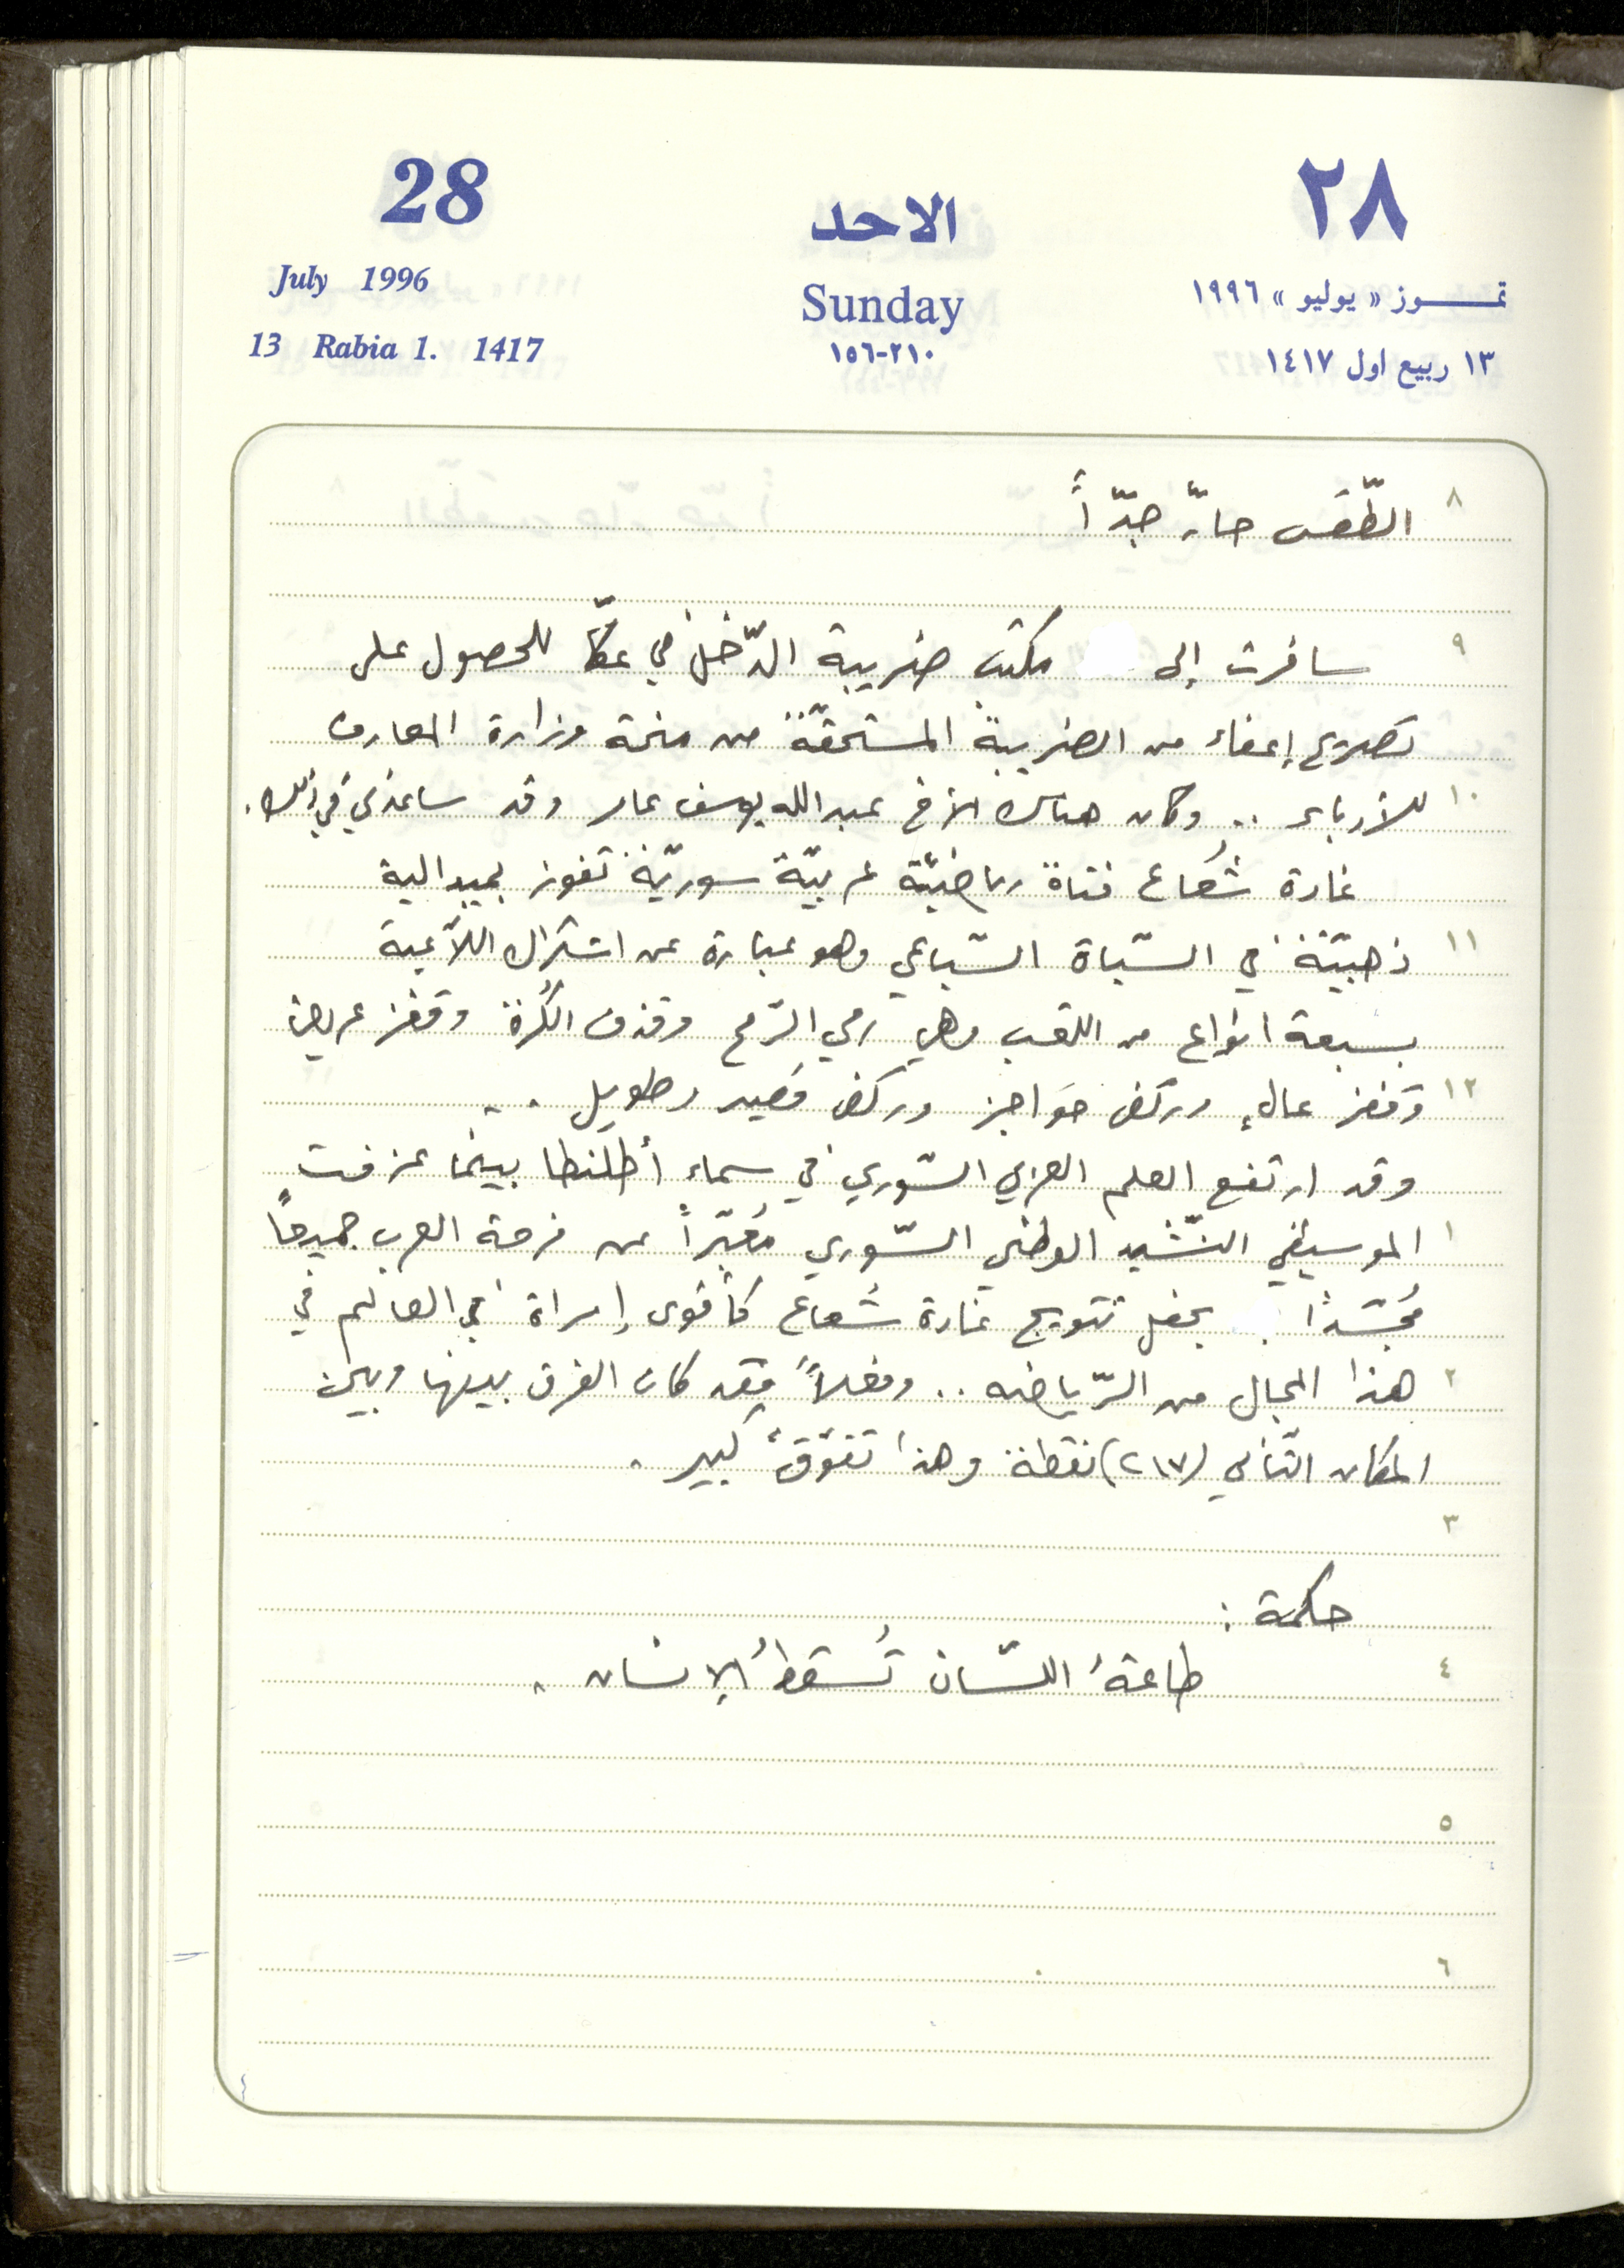 28
الاحد
٢٨
July 1996
Sunday
تمـــوز « يوليو » ١٩٩٦
13 Rabia 1. 1417
٢١٠-١٥٦
١٣ ربيع اول ١٤١٧
٨ الطّقس حارّ جدّاً
٩ سافرت إلى مكتب ضريبة الدّخل في عكّا للحصول على
تصريح إعفاء من الضريبة المستحقّة من منحة وزارة المعارف
١٠ للأدباء .. وكان هناك الأخ عبدالله يوسف عامر وقد ساعدني في ذلك .
غادة شُعاع فتاة رياضيّة عربيّة سوريّة تفوز بميدالية
١١ ذهبيّة في السّباق السّباعي وهو عبارة عن اشتراك اللّاعبة
بسبعة انواع من اللعب وهي رمي الرّمح وقذف الكُرة وقفز عريض
١٢ وَقفز عالٍ وركض حَواجز وركض قصير وطويل ..
وقد ارتفع العلم العربي السّوري في سماء أطلنطا بينما عزفت
١ الموسيقى النّشيد الوطني السّوري مُعبّراً عن فرحة العرب جميعاً
مُجسّداً بحفل تتويج غادة شُعاع كأقوى إمراة في العالم في
٢ هذا المجال من الرّياضه .. وفعلاً فقد كان الفرق بينها وبين
المكان الثّاني (٢١٧) نقطة وهذا تفوّقٌ كبير .
٣
حكمة :
٤ طاعةُ اللّسان تُسقطُ الإنسان .
٥
٦